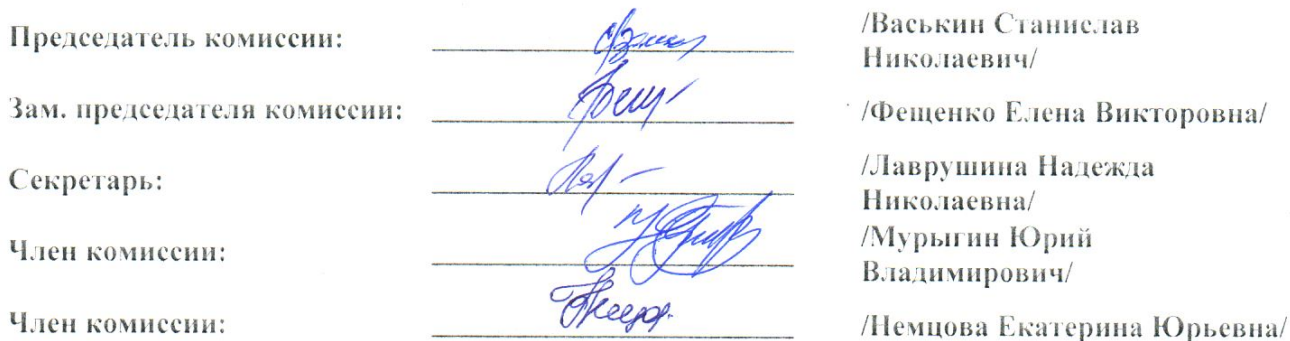 Председатель комиссии: /Васькин Станислав
Николаевич/
Зам. председателя комиссии: /Фещенко Елена Викторовна/
Секретарь: /Лаврушина Надежда
Николаевна/
Член комиссии: /Мурыгин Юрий
Владимирович/
Член комиссии: /Немцова Екатерина Юрьевна/